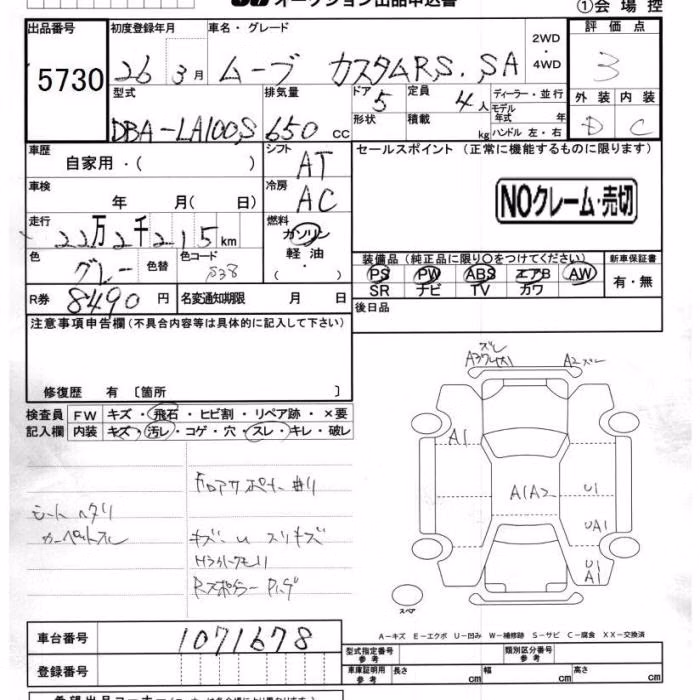 オークション出品申込書
①会場控
出品番号 初度登録年月 車名・グレード 2WD ・ 4WD 評価点
5730 26 3月 ムーブ カスタムRS.SA 3
型式 排気量 ドア 定員 ディーラー・並行 外装 内装
DBA-LA100S 650 cc 5 4人 モデル年式 年 D C
形状 積載 kg ハンドル 左・右
車歴 シフト セールスポイント(正常に機能するものに限ります)
自家用・( ) AT
車検 冷房
年 月( 日) AC NOクレーム・売切
走行 燃料
22万2千215km ガソリン
色 色替 色コード 軽油 装備品(純正品に限り○をつけてください) 新車保証書
グレー S38 ( ・ ) PS PW ABS エアB AW 有・無
SR ナビ TV カワ
R券 8490円 名変通知期限 月 日 後日品
注意事項申告欄(不具合内容等は具体的に記入して下さい)
修復歴 有 〔箇所 〕
検査員 FW キズ・飛石・ヒビ割・リペア跡・×要
記入欄 内装 キズ・汚レ・コゲ・穴・スレ・キレ・破レ
ズレ
A3ワレ(大) A2ズレ
A1
A1A2
U1
UA1
U1
A1
スペア
シートヘタリ
カーペットスレ
キズ・U スリキズ
A-キズ E-エクボ U-凹み W-補修跡 S-サビ C-腐食 XX-交換済
車台番号 1071678 型式指定番号 参考 類別区分番号 参考
登録番号 車庫証明用 参考 長さ cm 幅 cm 高さ cm